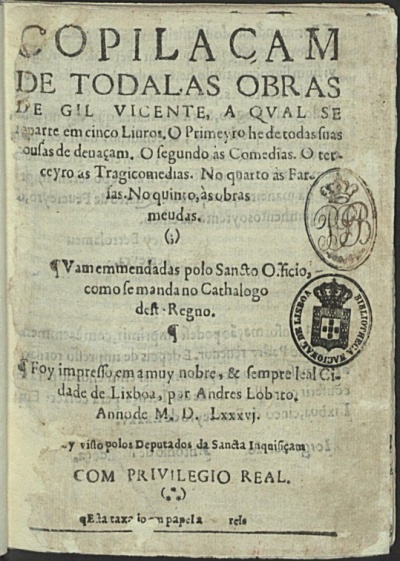 COPILAÇAM
DE TODALAS OBRAS
DE GIL VICENTE, A QVAL SE
reparte em cinco Liuros. O Primeyro he de todas suas
cousas de deuaçam. O segundo às Comedias. O ter-
ceyro as Tragicomedias. No quarto às Far-
sas. No quinto, às obras
meudas.
(;)
¶ Vam emmendadas polo Sancto Officio,
como se manda no Cathalogo
deste Regno.
¶
¶ Foy impresso em a muy nobre, & sempre leal Ci-
dade de Lixboa, por Andres Lobato.
Anno de M. D. Lxxxvj.
y visto polos Deputados da Sancta Inquisiçam
COM PRIVILEGIO REAL.
(∵)
¶ Esta taxa em papel a reis
BIBLIOTHECA NACIONAL DE LISBOA